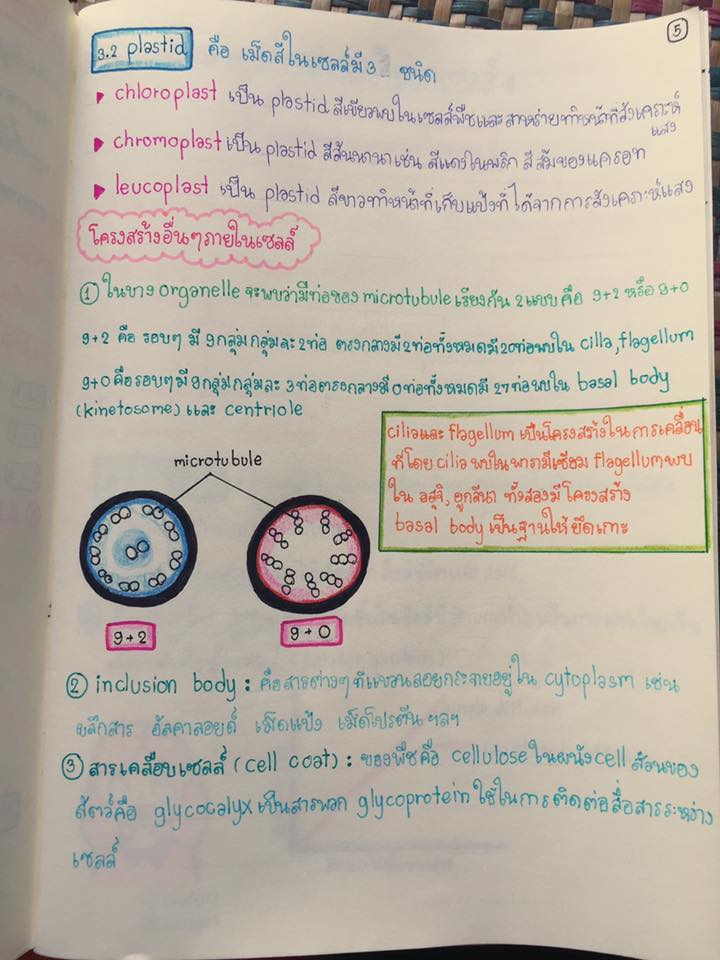 5
3.2 plastid คือ เม็ดสีในเซลล์มี 3 ชนิด
▸ chloroplast เป็น plastid สีเขียวพบในเซลล์พืชและสาหร่ายทำหน้าที่สังเคราะห์
แสง
▸ chromoplast เป็น plastid สีสันนานาเช่น สีแดงในพริก สีส้มของแครอท
▸ leucoplast เป็น plastid สีขาวทำหน้าที่เก็บแป้งที่ได้จากการสังเคราะห์แสง
โครงสร้างอื่นๆภายในเซลล์
① ในบาง organelle จะพบว่ามีท่อของ microtubule เรียงกัน 2 แบบ คือ 9+2 หรือ 9+0
9+2 คือ รอบๆ มี 9 กลุ่ม กลุ่มละ 2 ท่อ ตรงกลางมี 2 ท่อทั้งหมดมี 20 ท่อพบใน cilla, flagellum
9+0 คือรอบๆ มี 9 กลุ่ม กลุ่มละ 3 ท่อตรงกลางมี 0 ท่อทั้งหมดมี 27 ท่อ พบใน basal body
(kinetosome) และ centriole
cilia และ flagellum เป็นโครงสร้างในการเคลื่อน
ที่โดย cilia พบในพารามีเซียม flagellum พบ
ใน อสุจิ, ยูกลีนา ทั้งสองมีโครงสร้าง
basal body เป็นฐานให้ยึดเกาะ
microtubule
9+2
9+0
② inclusion body : คือสารต่างๆที่แขวนลอยกระจายอยู่ใน cytoplasm เช่น
ผลึกสาร อัลคาลอยด์ เม็ดแป้ง เม็ดโปรตีน ฯลฯ
③ สารเคลือบเซลล์ (cell coat) : ของพืชคือ cellulose ในผนัง cell ส่วนของ
สัตว์คือ glycocalyx เป็นสารพวก glycoprotein ใช้ในการติดต่อสื่อสารระหว่าง
เซลล์